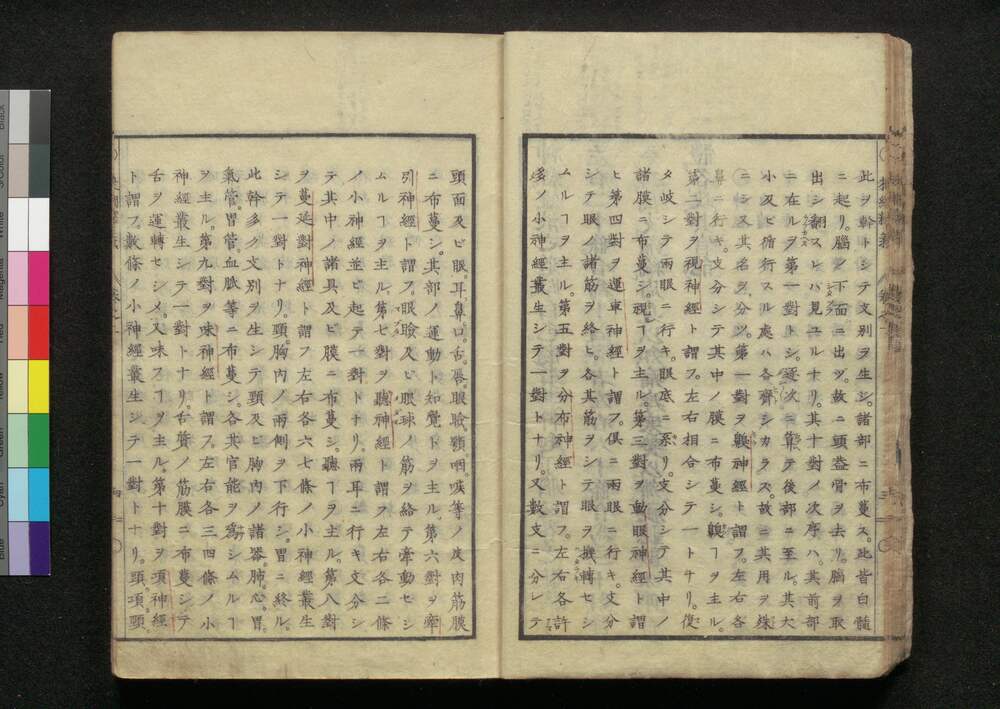 此ヲ幹トシテ支別ヲ生シ。諸部ニ布蔓ス。此皆白髓
ニ起リ。腦ノ下面ニ出ツ。故ニ頭蓋骨ヲ去リ。腦ヲ取
出シ翻スレハ見ユルナリ。其十對ノ次序ハ。其前部
ニ在ルヲ第一對トシ。逐次ニ算テ後部ニ至ル。其大
小及ヒ循行スル處ハ各齊シカラス。故ニ其用ヲ殊
ニシ又其名ヲ分ツ。第一對ヲ齅神經ト謂フ。左右各
鼻ニ行キ。支分シテ其中ノ膜ニ布蔓シ。齅ヿヲ主ル。
第二對ヲ視神經ト謂フ。左右相合シテ一トナリ。復
タ岐シテ兩眼ニ行キ。眼底ニ系リ。支分シテ其中ノ
諸膜ニ布蔓シ。視ヿヲ主ル。第三對ヲ動眼神經ト謂
ヒ第四對ヲ運車神經ト謂フ。俱ニ兩眼ニ行キ。支分
シテ眼ノ諸筋ヲ絡ヒ。各其筋ヲシテ眼ヲ捩轉セシ
ムルヿヲ主ル。第五對ヲ分布神經ト謂フ。左右各許
多ノ小神經叢生シテ一對トナリ。又數支ニ分レテ
頭面及ヒ眼。耳。鼻。口。舌。唇。眼瞼。頸。咽。喉等ノ皮肉筋膜
ニ布蔓シ。其部ノ運動ト知覺トヲ主ル。第六對ヲ牽
引神經ト謂フ。眼瞼及ヒ眼球ノ筋ヲ絡テ牽動セシ
ムルヿヲ主ル。第七對ヲ聽神經ト謂フ左右各二條
ノ小神經並ヒ起テ一對トナリ。兩耳ニ行キ支分シ
テ其中ノ諸具及ヒ膜ニ布蔓シ。聽ヿヲ主ル。第八對
ヲ蔓延對神經ト謂フ左右各六七條ノ小神經叢生
シテ一對トナリ。頸。胸内ノ兩側ヲ下行シ。胃ニ終ル。
此幹多ク支別ヲ生シテ頸及ヒ胸内ノ諸器。肺。心。胃。
氣管。胃管血脈等ニ布蔓シ。各其官能ヲ爲シムルヿ
ヲ主ル。第九對ヲ味神經ト謂フ。左右各三四條ノ小
神經叢生シテ一對トナリ。舌質ノ筋膜ニ布蔓シテ
舌ヲ運轉セシメ。又味フヿヲ主ル。第十對ヲ項神經
ト謂フ數條ノ小神經叢生シテ一對トナリ。頭。項。頸